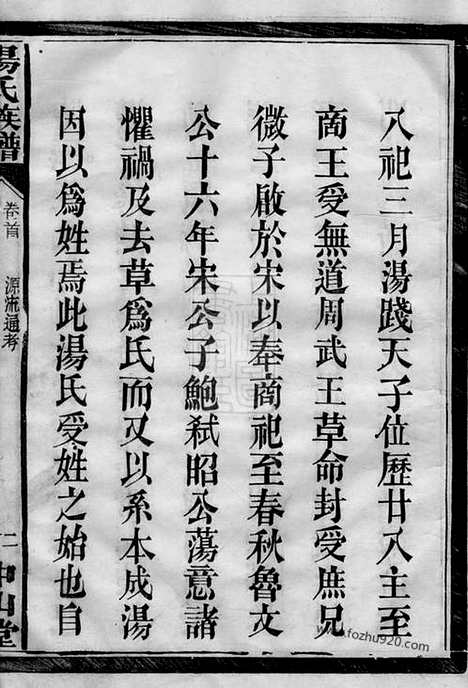 八祀三月湯踐天子位歷廿八主至
商王受無道周武王革命封受庶兄
微子啟於宋以奉商祀至春秋魯文
公十六年宋公子鮑弒昭公蕩意諸
懼禍及去草爲氏而又以系本成湯
因以爲姓焉此湯氏受姓之始也自
湯氏族譜
卷首
源流通考
二
中山堂
www.fozhu920.com